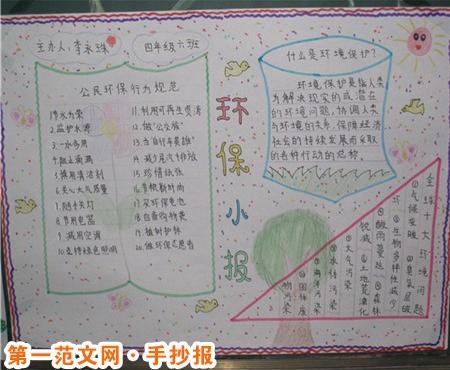 主办人:李永珠
四年级六班
公民环保行为规范
1.节水为荣
2.监护水源
3.一水多用
4.阻止滴漏
5.慎用清洁剂
6.关心大气质量
7.随手关灯
8.节用电器
9.减用空调
10.支持绿色照明
11.利用可再生资源
12.做"公交族"
13.当"自行车英雄"
14.减少尾气排放
15.珍惜纸张
16.新时尚
17.买环保电池
18.自备购物袋
19.植树护林
20.做环保志愿者
环保小报
什么是环境保护?
环境保护是指人类
为解决现实的或潜在
的环境问题,协调人类
与环境的关系,保障经济
社会的持续发展而采取
的各种行动的总称。
全球十大环境问题
①气候变暖②臭氧层破
坏③生物多样性减少
④酸雨蔓延⑤森林
锐减⑥土地荒漠化
⑦大气污染
⑧水体污染
⑨海洋污染
⑩固体废
物污染
第一范文网·手抄报